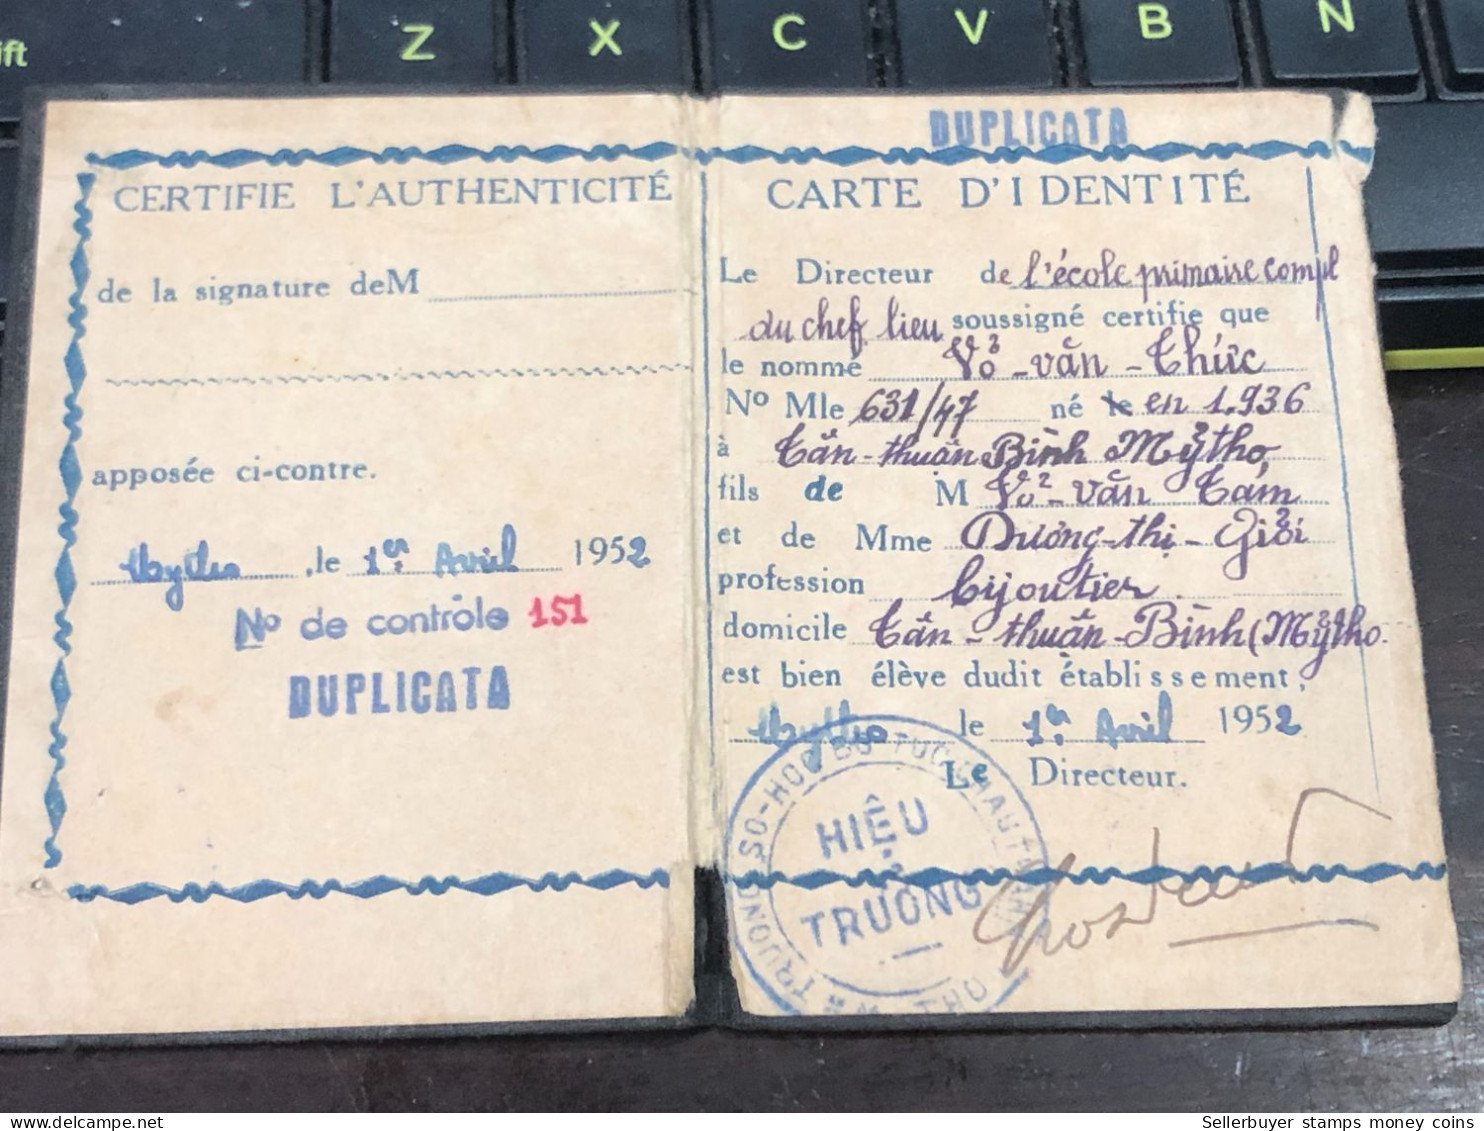 ift Z X C V B N
CERTIFIE L'AUTHENTICITÉ
de la signature de M
apposée ci-contre.
Mytho, le 1er Avril 1952
No de contrôle 151
DUPLICATA
DUPLICATA
CARTE D'IDENTITÉ
Le Directeur de l'école primaire compl
du chef lieu soussigné certifie que
le nommé Võ-văn-Thức
No Mle 631/47 né le en 1.936
à Tân-thuận Bình Mỹtho
fils de M Võ-văn Tám
et de Mme Dương-thị-Giỏi
profession bijoutier
domicile Tân-thuận-Bình (Mỹtho.
est bien élève dudit établissement,
Mytho le 1er Avril 1952
Le Directeur.
HIỆU
TRƯỞNG
Sellerbuyer stamps money coins